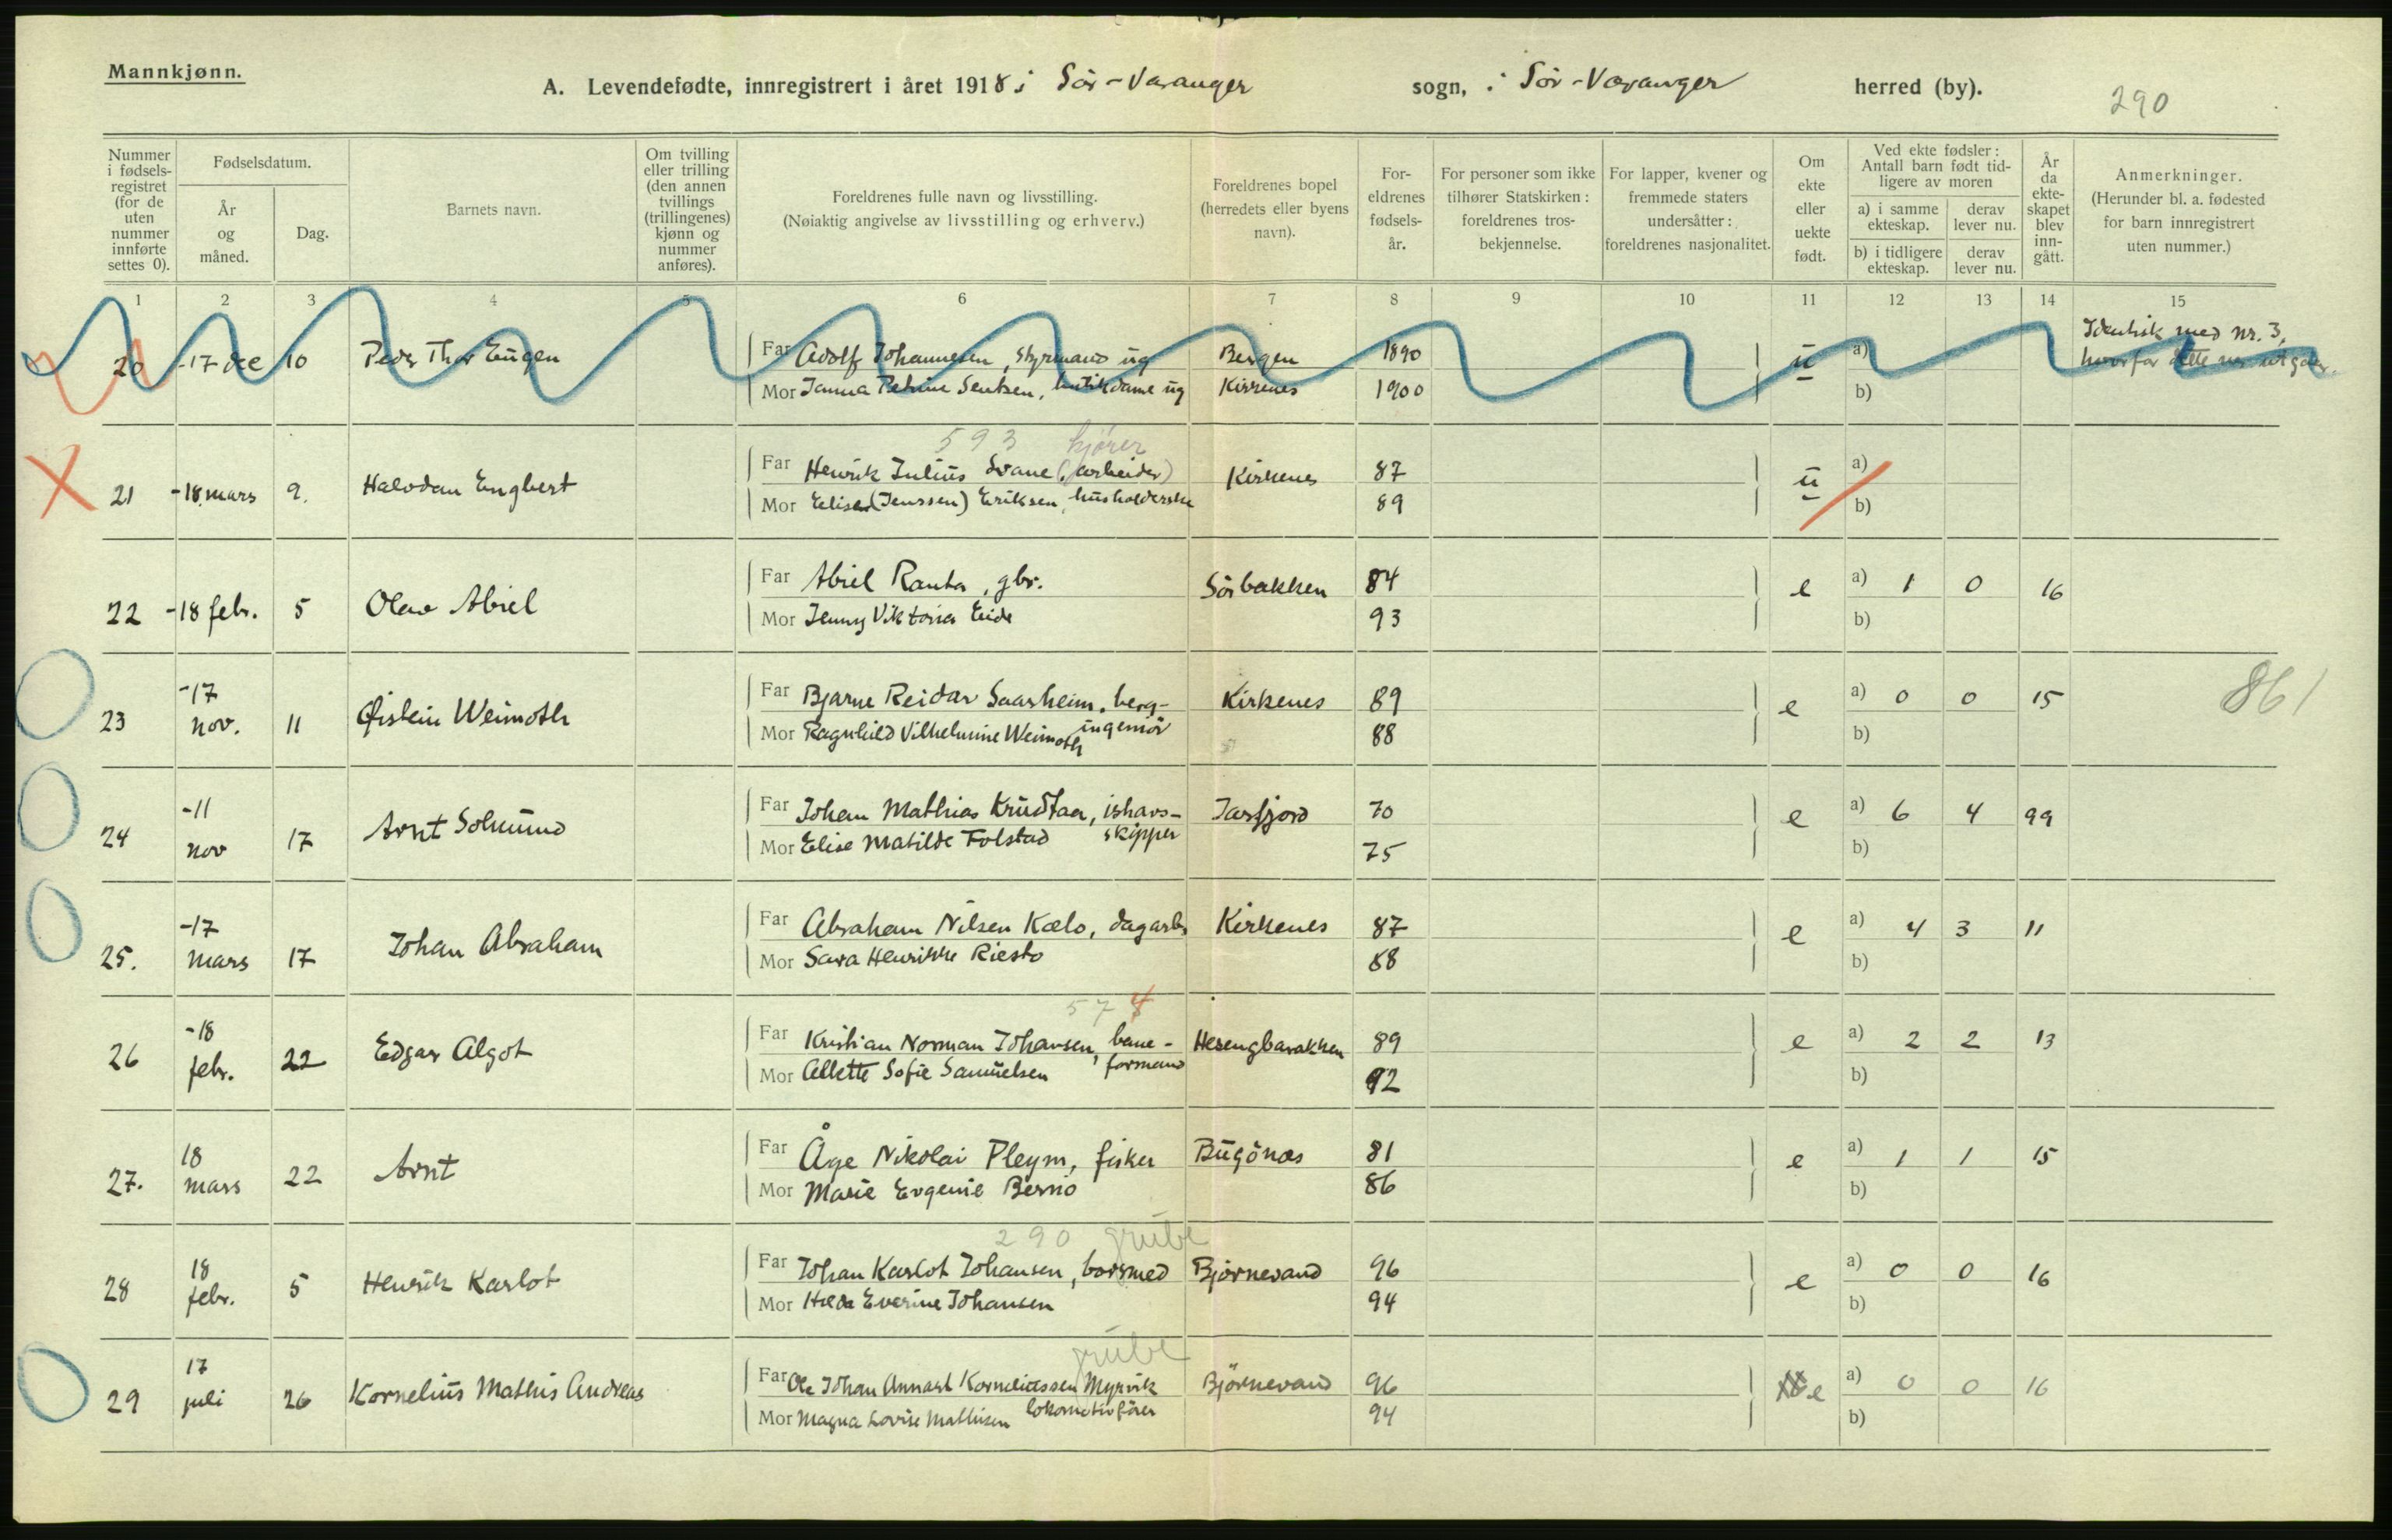 Mannkjønn.
A. Levendefødte, innregistrert i året 1918 i Sör-Varanger sogn, i Sör-Varanger herred (by).
290
Nummer i fødsels-registret (for de uten nummer innførte settes 0).
Fødselsdatum.
År og måned.
Dag.
Barnets navn.
Om tvilling eller trilling (den annen tvillings (trillingenes) kjønn og nummer anføres).
Foreldrenes fulle navn og livsstilling.
(Nøiaktig angivelse av livsstilling og erhverv.)
Foreldrenes bopel (herredets eller byens navn).
For-eldrenes fødsels-år.
For personer som ikke tilhører Statskirken: foreldrenes tros-bekjennelse.
For lapper, kvener og fremmede staters undersåtter: foreldrenes nasjonalitet.
Om ekte eller uekte født.
Ved ekte fødsler: Antall barn født tid-ligere av moren
a) i samme ekteskap.
derav lever nu.
b) i tidligere ekteskap.
derav lever nu.
År da ekte-skapet blev inn-gått.
Anmerkninger.
(Herunder bl. a. fødested for barn innregistrert uten nummer.)
1 2 3 4 5 6 7 8 9 10 11 12 13 14 15
20 -17 dec 10 Peder Thor Eugen Far Adolf Johannesen, styrmand ug Bergen 1890 ü a) Identisk med nr. 3,
Mor Janna Petrine Sentsen, butikdame ug Kirkenes 1900 b) hvorfor dette nr utgår.
593 kjører
21 -18 mars 9. Halvdan Engbert Far Henrik Julius Svane (arbeider) Kirkenes 87 ü a)
Mor Elise (Jenssen) Eriksen, husholderske 89 b)
22 -18 febr. 5 Olav Abiel Far Abiel Ranta, gbr. Sörbakken 84 e a) 1 0 16
Mor Jenny Viktoria Eide 93 b)
23 -17 nov. 11 Øistein Weimoth Far Bjarne Reidar Saarheim, berg- Kirkenes 89 e a) 0 0 15 861
ingeniör
Mor Ragnhild Vilhelmine Weimoth 88 b)
24 -11 nov 17 Arnt Solmund Far Johan Mathias Krudtaa, ishavs- Jarfjord 70 e a) 6 4 99
skipper
Mor Elise Matilde Folstad 75 b)
25. -17 mars 17 Johan Abraham Far Abraham Nilsen Kælo, dagarb. Kirkenes 87 e a) 4 3 11
Mor Sara Henrikke Riesto 88 b)
578
26 -18 febr. 22 Edgar Algot Far Kristian Norman Johansen, bane- Hesengbarakken 89 e a) 2 2 13
formand
Mor Allette Sofie Samuelsen 92 b)
27. 18 mars 22 Arnt Far Åge Nikolai Pleym, fisker Bugönæs 81 e a) 1 1 15
Mor Marie Evgenie Bernio 86 b)
290 grube
28 18 febr. 5 Henrik Karlot Far Johan Karlot Johansen, borsmed Björnevand 96 e a) 0 0 16
Mor Hilda Everine Johansen 94 b)
grube
29 17 juli 26 Kornelius Mathis Andreas Far Ole Johan Annart Korneliussen Myrvik Björnevand 96 e a) 0 0 16
lokomotivförer
Mor Magna Lovise Mathisen 94 b)